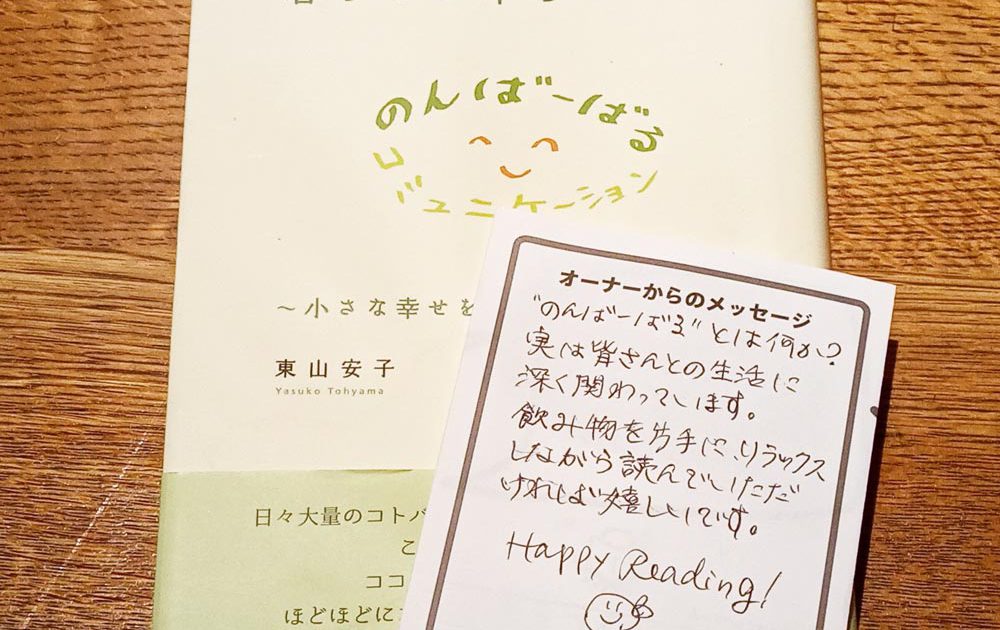 のんばーばる
コミュニケーション
～小さな幸せを
東山安子
Yasuko Tohyama
日々大量のコトバ
こ
ココ
ほどほどに
オーナーからのメッセージ
"のんばーばる"とは何か?
実は皆さんとの生活に
深く関わっています。
飲み物を片手に、リラックス
しながら読んでいただ
ければ嬉しいです。
Happy Reading!